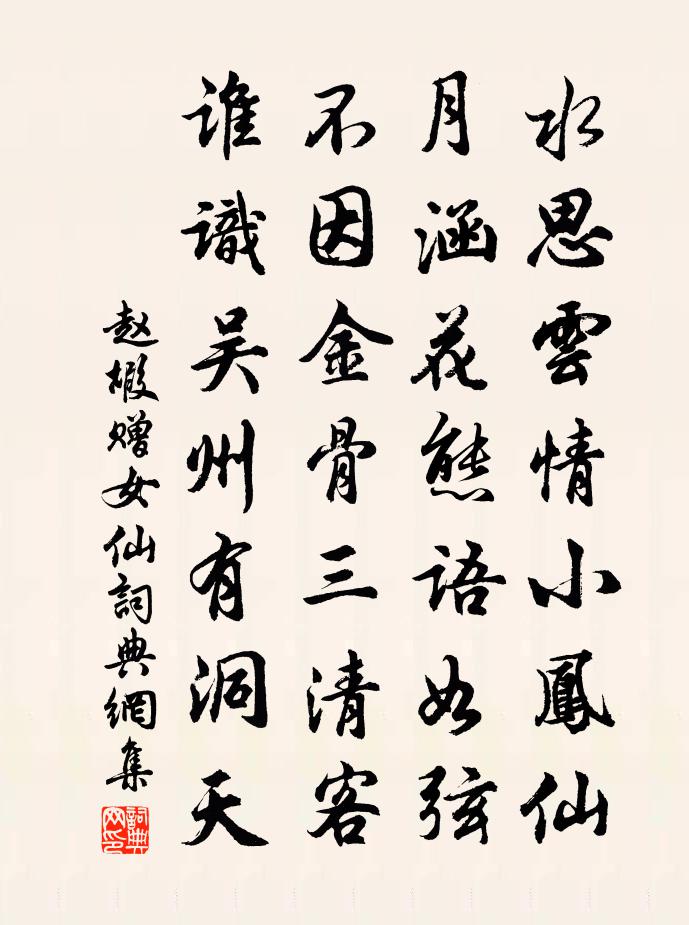 水思雲情小鳳仙
月涵花態語如弦
不因金骨三清客
誰識吴州有洞天
赵嘏贈女仙詞典網集
詞典网印